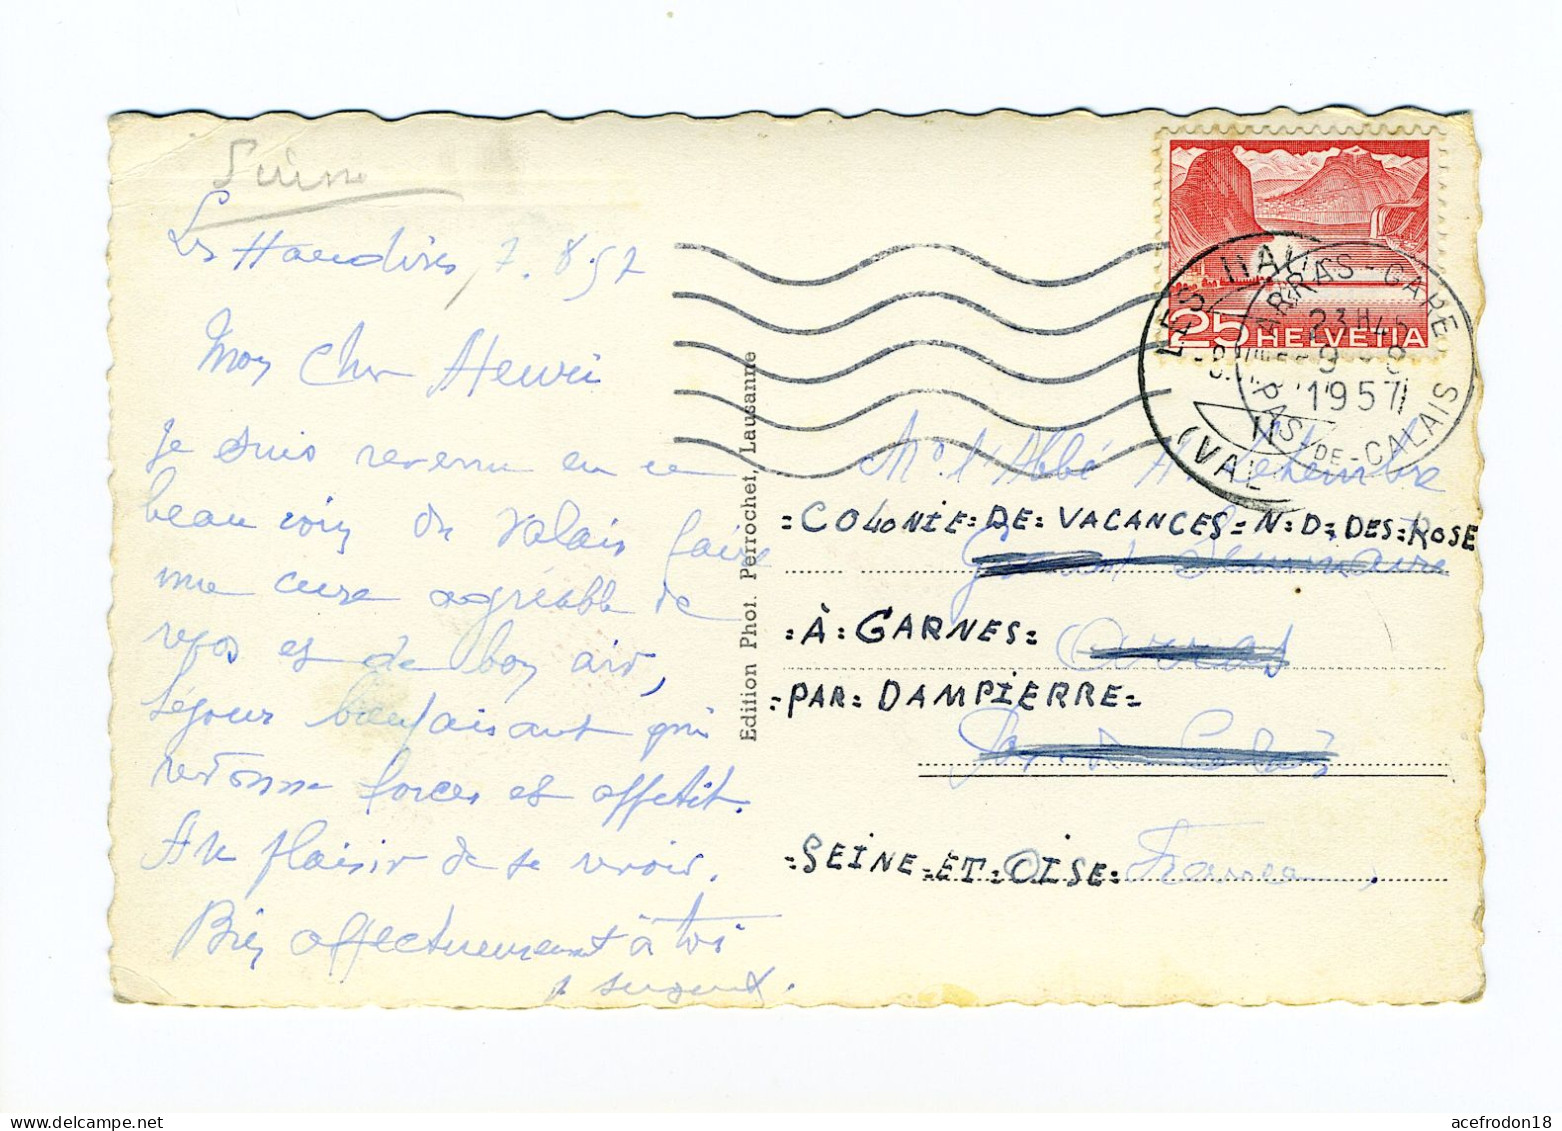 Suisse
Les Haudères 7.8.57
Mon cher Henri
Je suis revenu en ce
beau coin du Valais faire
une cure agréable de
repos et de bon air,
séjour bienfaisant qui
redonne forces et appétit.
Au plaisir de se revoir.
Bien affectueusement à toi
Edition Phot. Perrochet, Lausanne
25 HELVETIA
LES HAU
(VAL
ARRAS-GARE
23H45
9-8
1957
PAS-DE-CALAIS
Mr. l'Abbé H. Delembre
=COLONIE=DE=VACANCES=N=D=DES=ROSE
Grand Séminaire
=À=GARNES=
Arras
=PAR=DAMPIERRE=
Pas de Calais
=SEINE=ET=OISE= France
acefrodon18